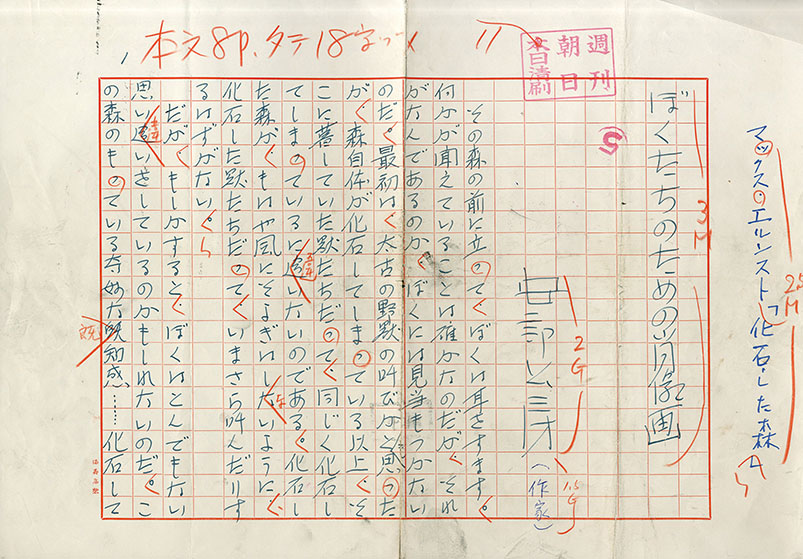 本文8P.タテ18字づメ
11
週刊
朝日
マックス・エルンスト「化石した森」
25M
ぼくたちのための肖像画
3M
5
安部公房
2G
（作家）
1.5G
その森の前に立って、ぼくは耳をすます。
何かが聞えていることは確かなのだが、それ
がなんであるのか、ぼくには見当もつかない
のだ。最初は、太古の野獣の叫びかと思った
が、森自体が化石してしまっている以上、そ
こに暮していた獣たちだって、同じく化石し
てしまっているに違いないのである。化石し
た森が、もはや風にそよぎはしないように、
化石した獣たちだって、いまさら叫んだりす
るはずがない。
だが、もしかすると、ぼくはとんでもない
思い違いをしているのかもしれないのだ。こ
の森のもっている奇妙な既知感……化石して
既